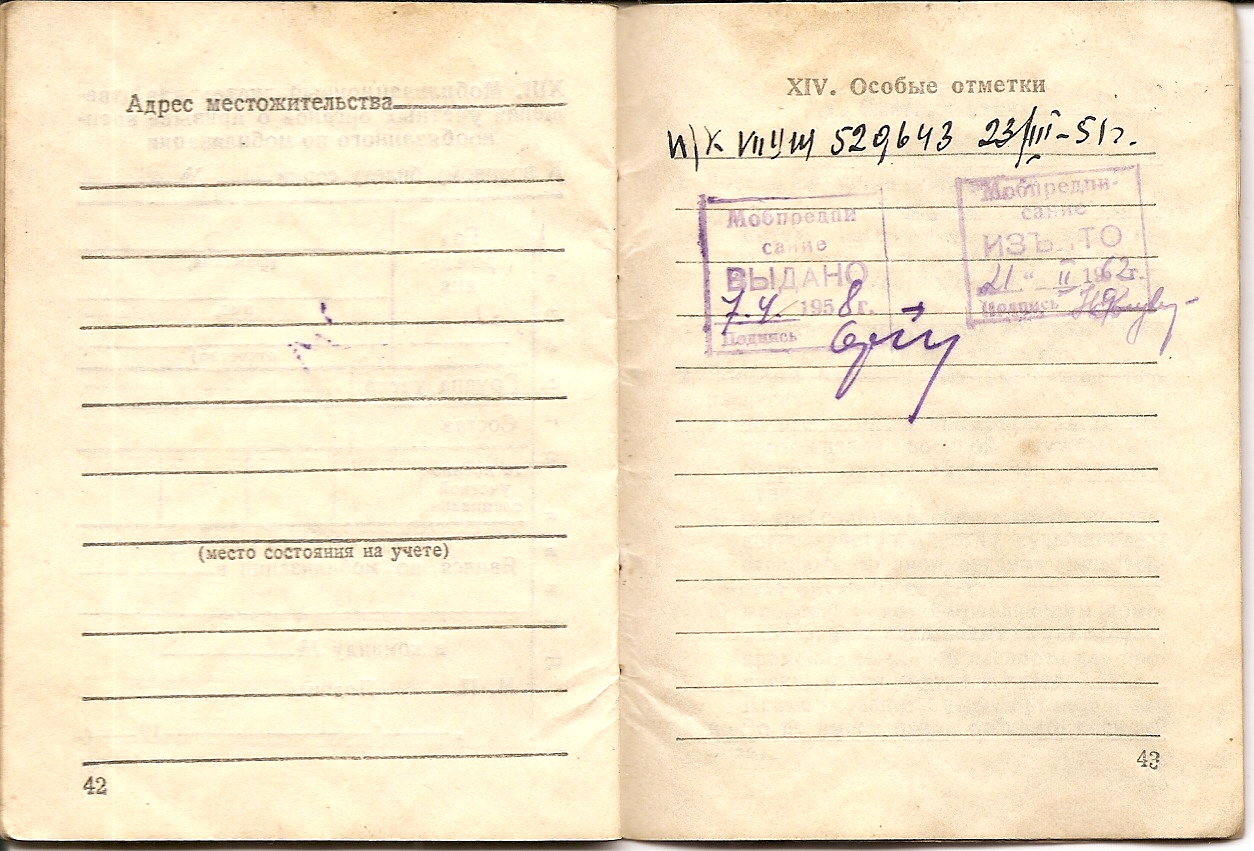 Адрес местожительства
(место состояния на учете)
42
XIV. Особые отметки
529643 23/III-51г.
Мобпредпи
сание
ВЫДАНО
7. 1958г.
Подпись
Мобпредпи-
сание
ИЗЪЯТО
21 " II 1962г.
Подпись
43